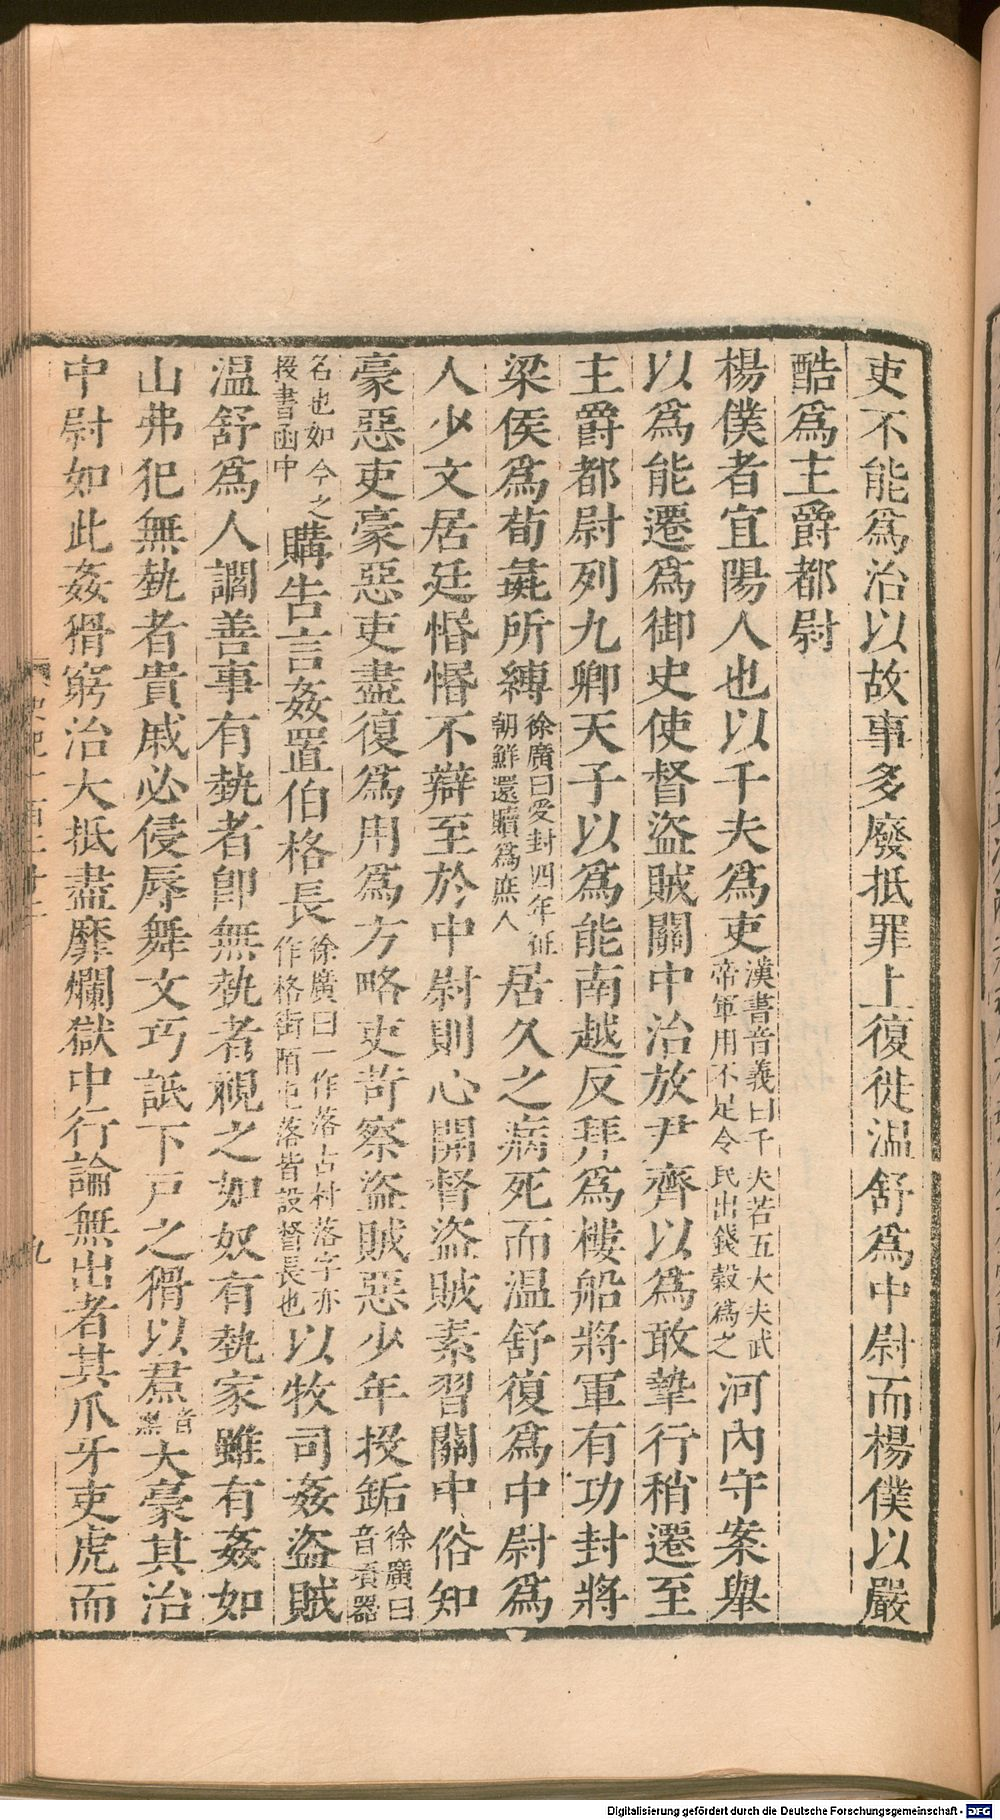 吏不能為治以故事多廢抵罪上復徙温舒為中尉而楊僕以嚴
酷為主爵都尉
楊僕者宜陽人也以千夫為吏漢書音義曰千夫若五大夫武帝軍用不足令民出錢穀為之河內守案舉
以為能遷為御史使督盜賊關中治放尹齊以為敢摯行稍遷至
主爵都尉列九卿天子以為能南越反拜為樓船將軍有功封將
梁侯為荀彘所縛徐廣曰受封四年征朝鮮還贖為庶人居久之病死而温舒復為中尉為
人少文居廷惛惛不辯至於中尉則心開督盜賊素習關中俗知
豪惡吏豪惡吏盡復為用為方略吏苛察盜賊惡少年投缿徐廣曰音項器
名也如今之投書函中購告言姦置伯格長徐廣曰一作落古村落字亦作格街陌屯落皆設督長也以牧司姦盜賊
温舒為人讇善事有埶者卽無埶者視之如奴有埶家雖有姦如
山弗犯無埶者貴戚必侵辱舞文巧詆下戶之猾以焄音熏大豪其治
中尉如此姦猾窮治大抵盡靡爛獄中行論無出者其爪牙吏虎而
九
Digitalisierung gefördert durch die Deutsche Forschungsgemeinschaft - DFG